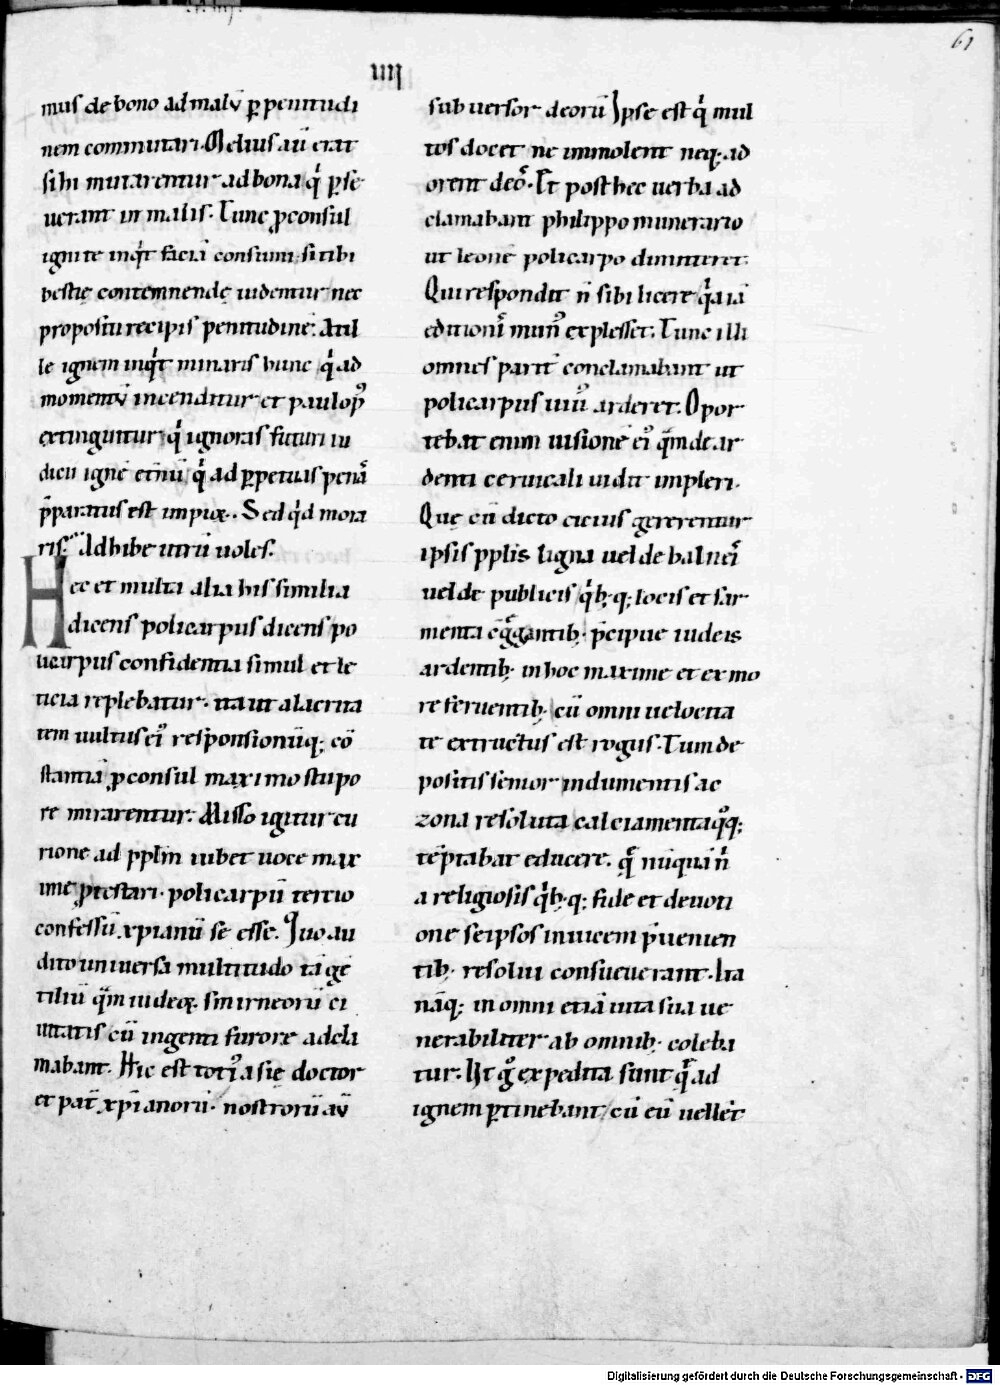 61
IIII
mus de bono ad malū ꝑ penitudi
nem commutari. Melius aū erat
sibi mutarentur ad bona q̇ ꝑse
uerant in malis. Tunc ꝓconsul
igni te inqt faciā consumi si tibi
bestię contemnendę uidentur nec
propositū recipis penitudinē. At il
le ignem inqt minaris hunc q̇ ad
momentū incenditur et paulo p᷒
extinguitur. q̇ ignoras futuri iu
dicii ignē et̄nū q̇ ad ꝑpetuas penā
p̄paratus est impiox. Sed q̇d mora
ris. Adhibe utrū uoles.
Hec et multa alia his similia
dicens policarpus dicens po
licarpus confidentia simul et le
ticia replebatur. ita ut alacrita
tem uultus ei᷒ responsionūq; cō
stantiā ꝓconsul maximo stupo
re miraretur. Misso igitur cu
rione ad pplm iubet uoce max
ime ꝓtestari. policarpū tercio
confessū xpianū se esse. Quo au
dito uniuersa multitudo tā gē
tiliū qm iudeoꝝ smirneorū ci
uitatis cū ingenti furore adcla
mabant. Hic est toti᷒ asię doctor
et pat̄ xpianorū. nostrorū aū
subuersor deorū Ipse est q̇ mul
tos docet ne immolent neq; ad
orent deo᷒. Et post hec uerba ad
clamabant philippo munerario
ut leonē policarpo dimitteret.
Qui respondit n̄ sibi licere qa iā
editionē mun᷒ explesset. Tunc illi
omnes parit̄ conclamabant ut
policarpus uiu᷒ arderet. Opor
tebat enim uisionē ei᷒ qm de ar
denti ceruicali uidit impleri.
Quę cū dicto cicius gererentur
ipsis pplis ligna uel de balneis
uel de publicis qb;q; locis et sar
menta cg̃gantib; p̄cipue iudeis
ardentib; in hoc maxime et ex mo
re feruentib; cū omni uelocita
te extructus est rogus. Tum de
positis senior indumentis ac
zona resoluta calciamenta qq;
tēptabat educere. q̄ nūquā n̄
a religiosis qb;q; fide et deuoti
one seipsos inuicem p̄uenien
tib; resolui consueuerant. Ita
nāq; in omni etiā uita sua ue
nerabiliter ab omnib; coleba
tur. Ut g̊ expedita sunt q̄ ad
ignem ꝑtinebant cū eū uellēt
Digitalisierung gefördert durch die Deutsche Forschungsgemeinschaft - DFG